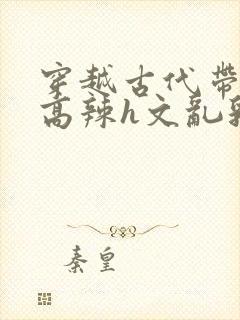 穿越古代带
高辣h文乱
秦皇